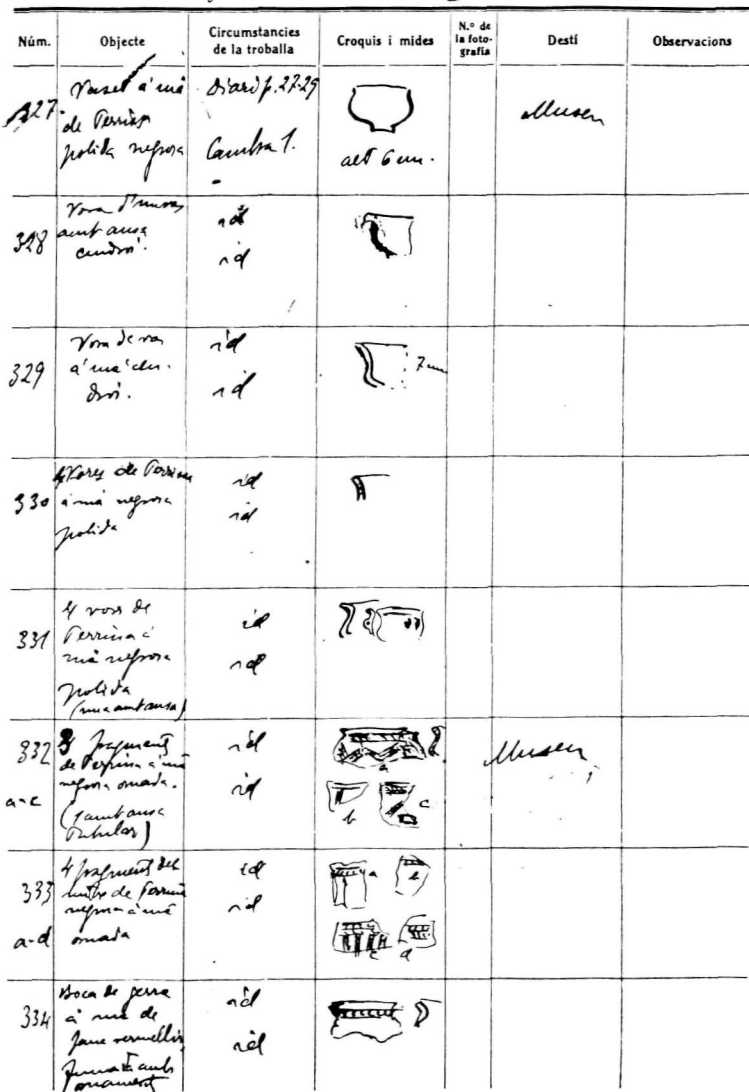 Núm.
Objecte
Circumstancies
de la troballa
Croquis i mides
N.º de
la foto-
grafia
Destí
Observacions
327
Vaset à mà
de Terrissa
polida negrosa
Diari p. 27-29
Cambra 1.
alt 6 cm.
Museu
328
amb ansa
id
id
329
Vora de vas
à mà
id
id
7 cm
330
4 Vores de Terrissa
à mà negrosa
polida
id
id
331
4 vores de
Terrissa à
mà negrosa
polida
(una amb ansa)
id
id
332
a-c
3 fragments
de Terrissa à mà
negrosa ornada.
(1 amb ansa
tubular)
id
id
a
b
c
Museu
333
a-d
4 fragments del
de Terrissa
negrosa à mà
ornada
id
id
a
b
c
d
334
Boca de gerra
à mà de
vermellosa
amb
ornament
id
id